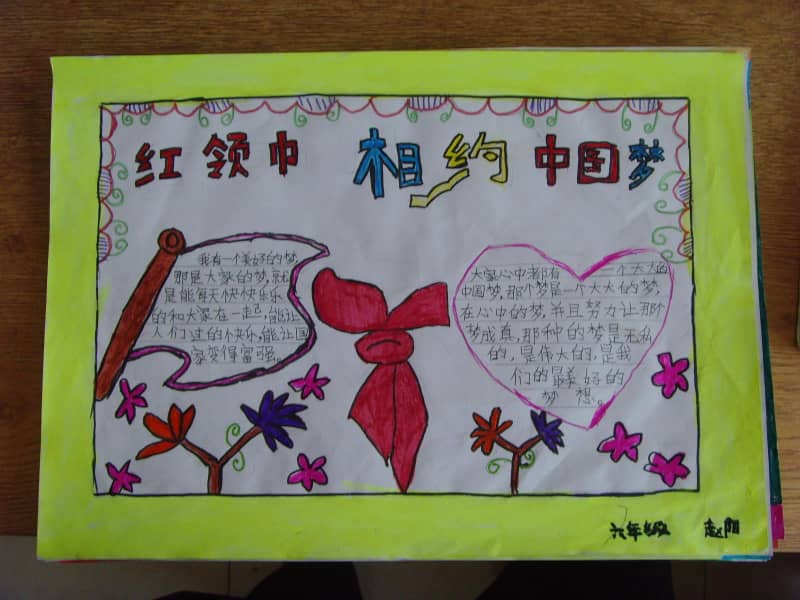 红领巾 相约 中国梦
我有一个美好的梦,
那是大家的梦,就
是能每天快快乐乐
的和大家在一起,能让
人们过的快乐,能让国
家变得富强。
大家心中都有 一个大大的
中国梦,那个梦是一个大大的梦,
在心中的梦,并且努力让那个
梦成真,那种的梦是无私
的,是伟大的,是我
们的最美好的
梦想。
六年级 赵阳